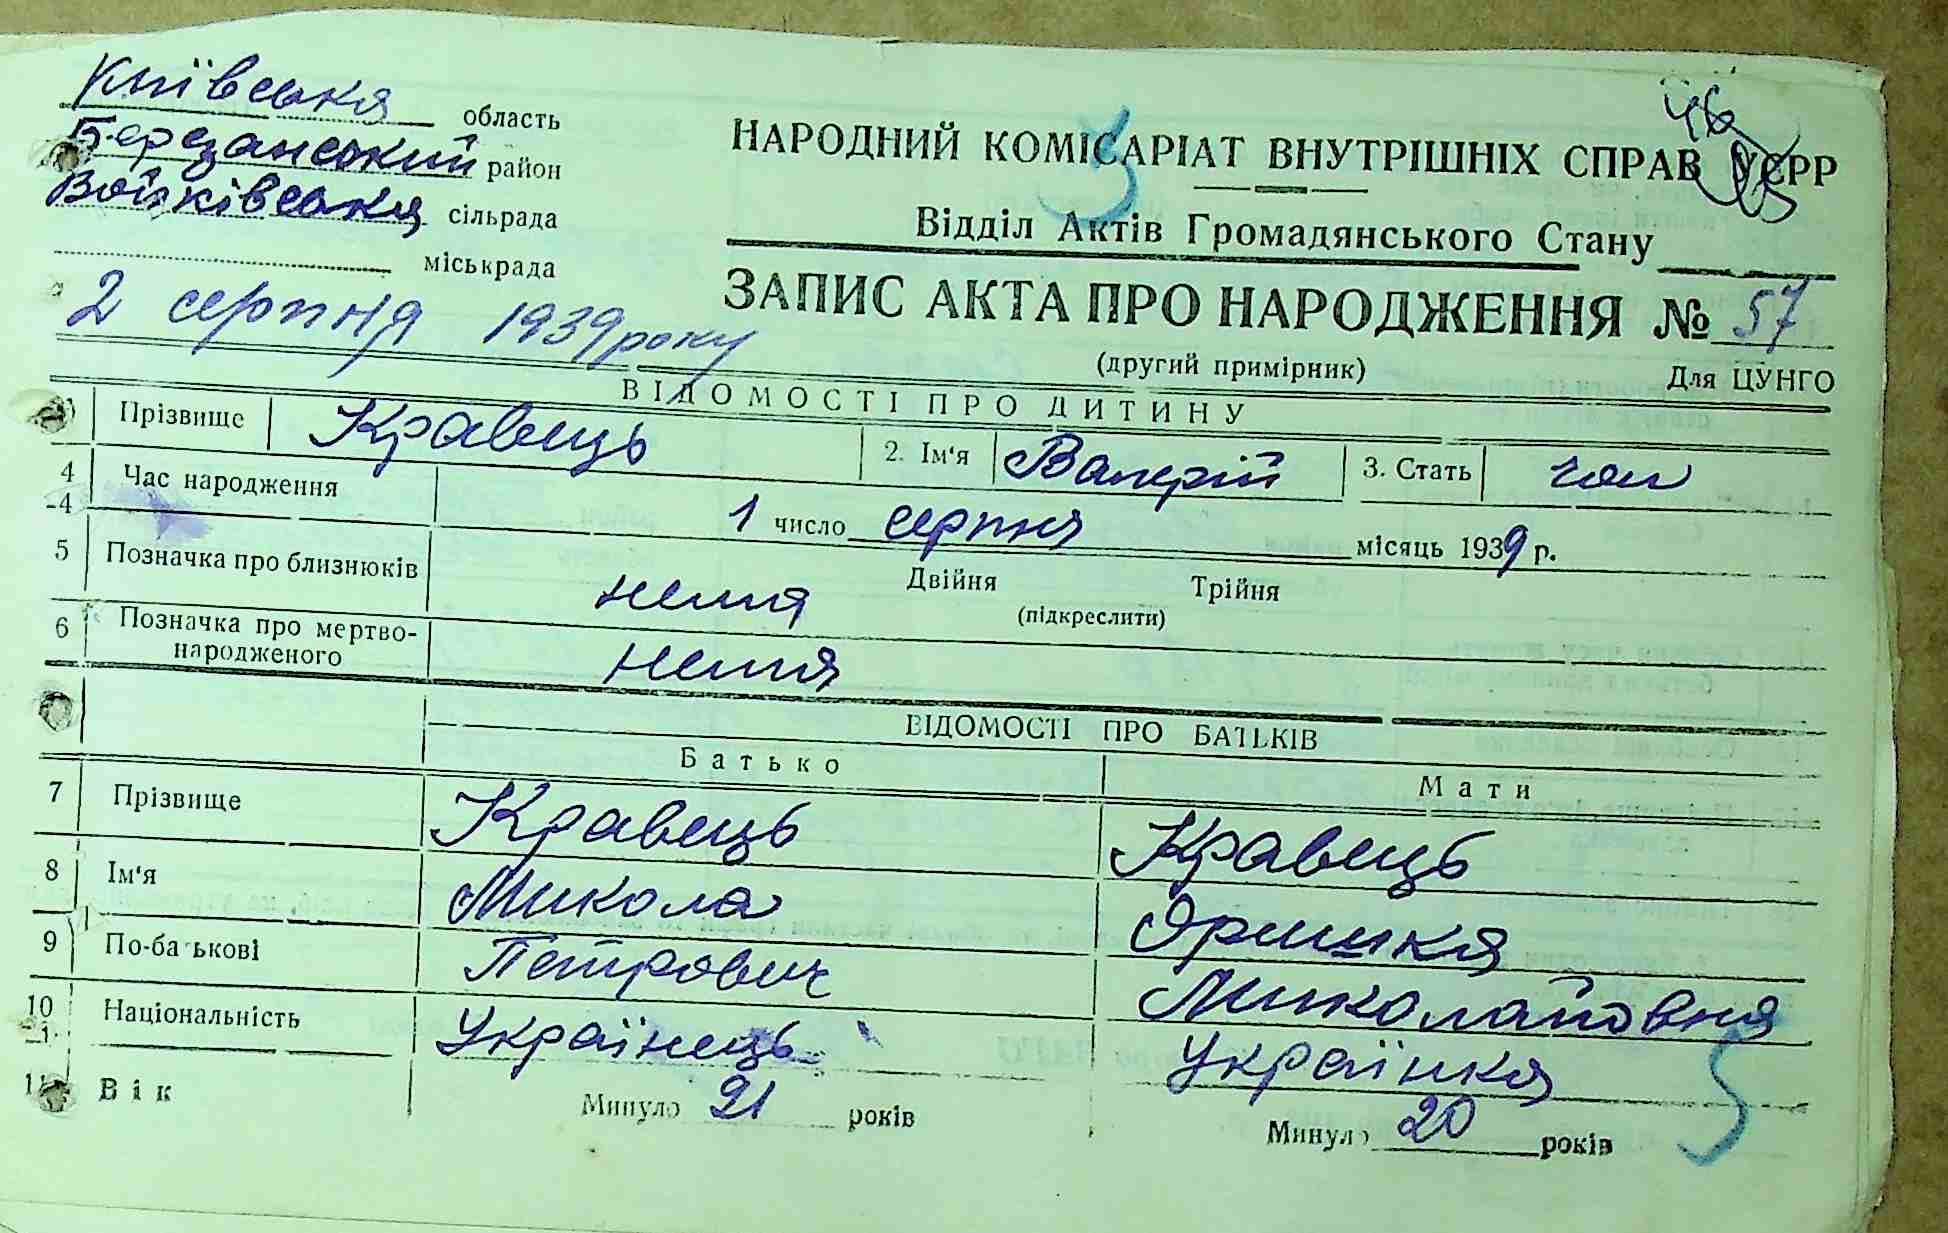 Київська область
Березанський район
Войківська сільрада
міськрада
2 серпня 1939 року
НАРОДНИЙ КОМІСАРІАТ ВНУТРІШНІХ СПРАВ УСРР
Відділ Актів Громадянського Стану
ЗАПИС АКТА ПРО НАРОДЖЕННЯ № 57
(другий примірник) Для ЦУНГО
ВІДОМОСТІ ПРО ДИТИНУ
Прізвище Кравець 2. Ім'я Валерій 3. Стать чол
4 Час народження 1 число серпня місяць 1939 р.
5 Позначка про близнюків нема Двійня Трійня
(підкреслити)
6 Позначка про мертво-
народженого нема
ВІДОМОСТІ ПРО БАТЬКІВ
Батько Мати
7 Прізвище Кравець Кравець
8 Ім'я Микола Оришка
9 По-батькові Петрович Миколаївна
10 Національність Українець Українка
11 Вік Минуло 21 років Минуло 20 років